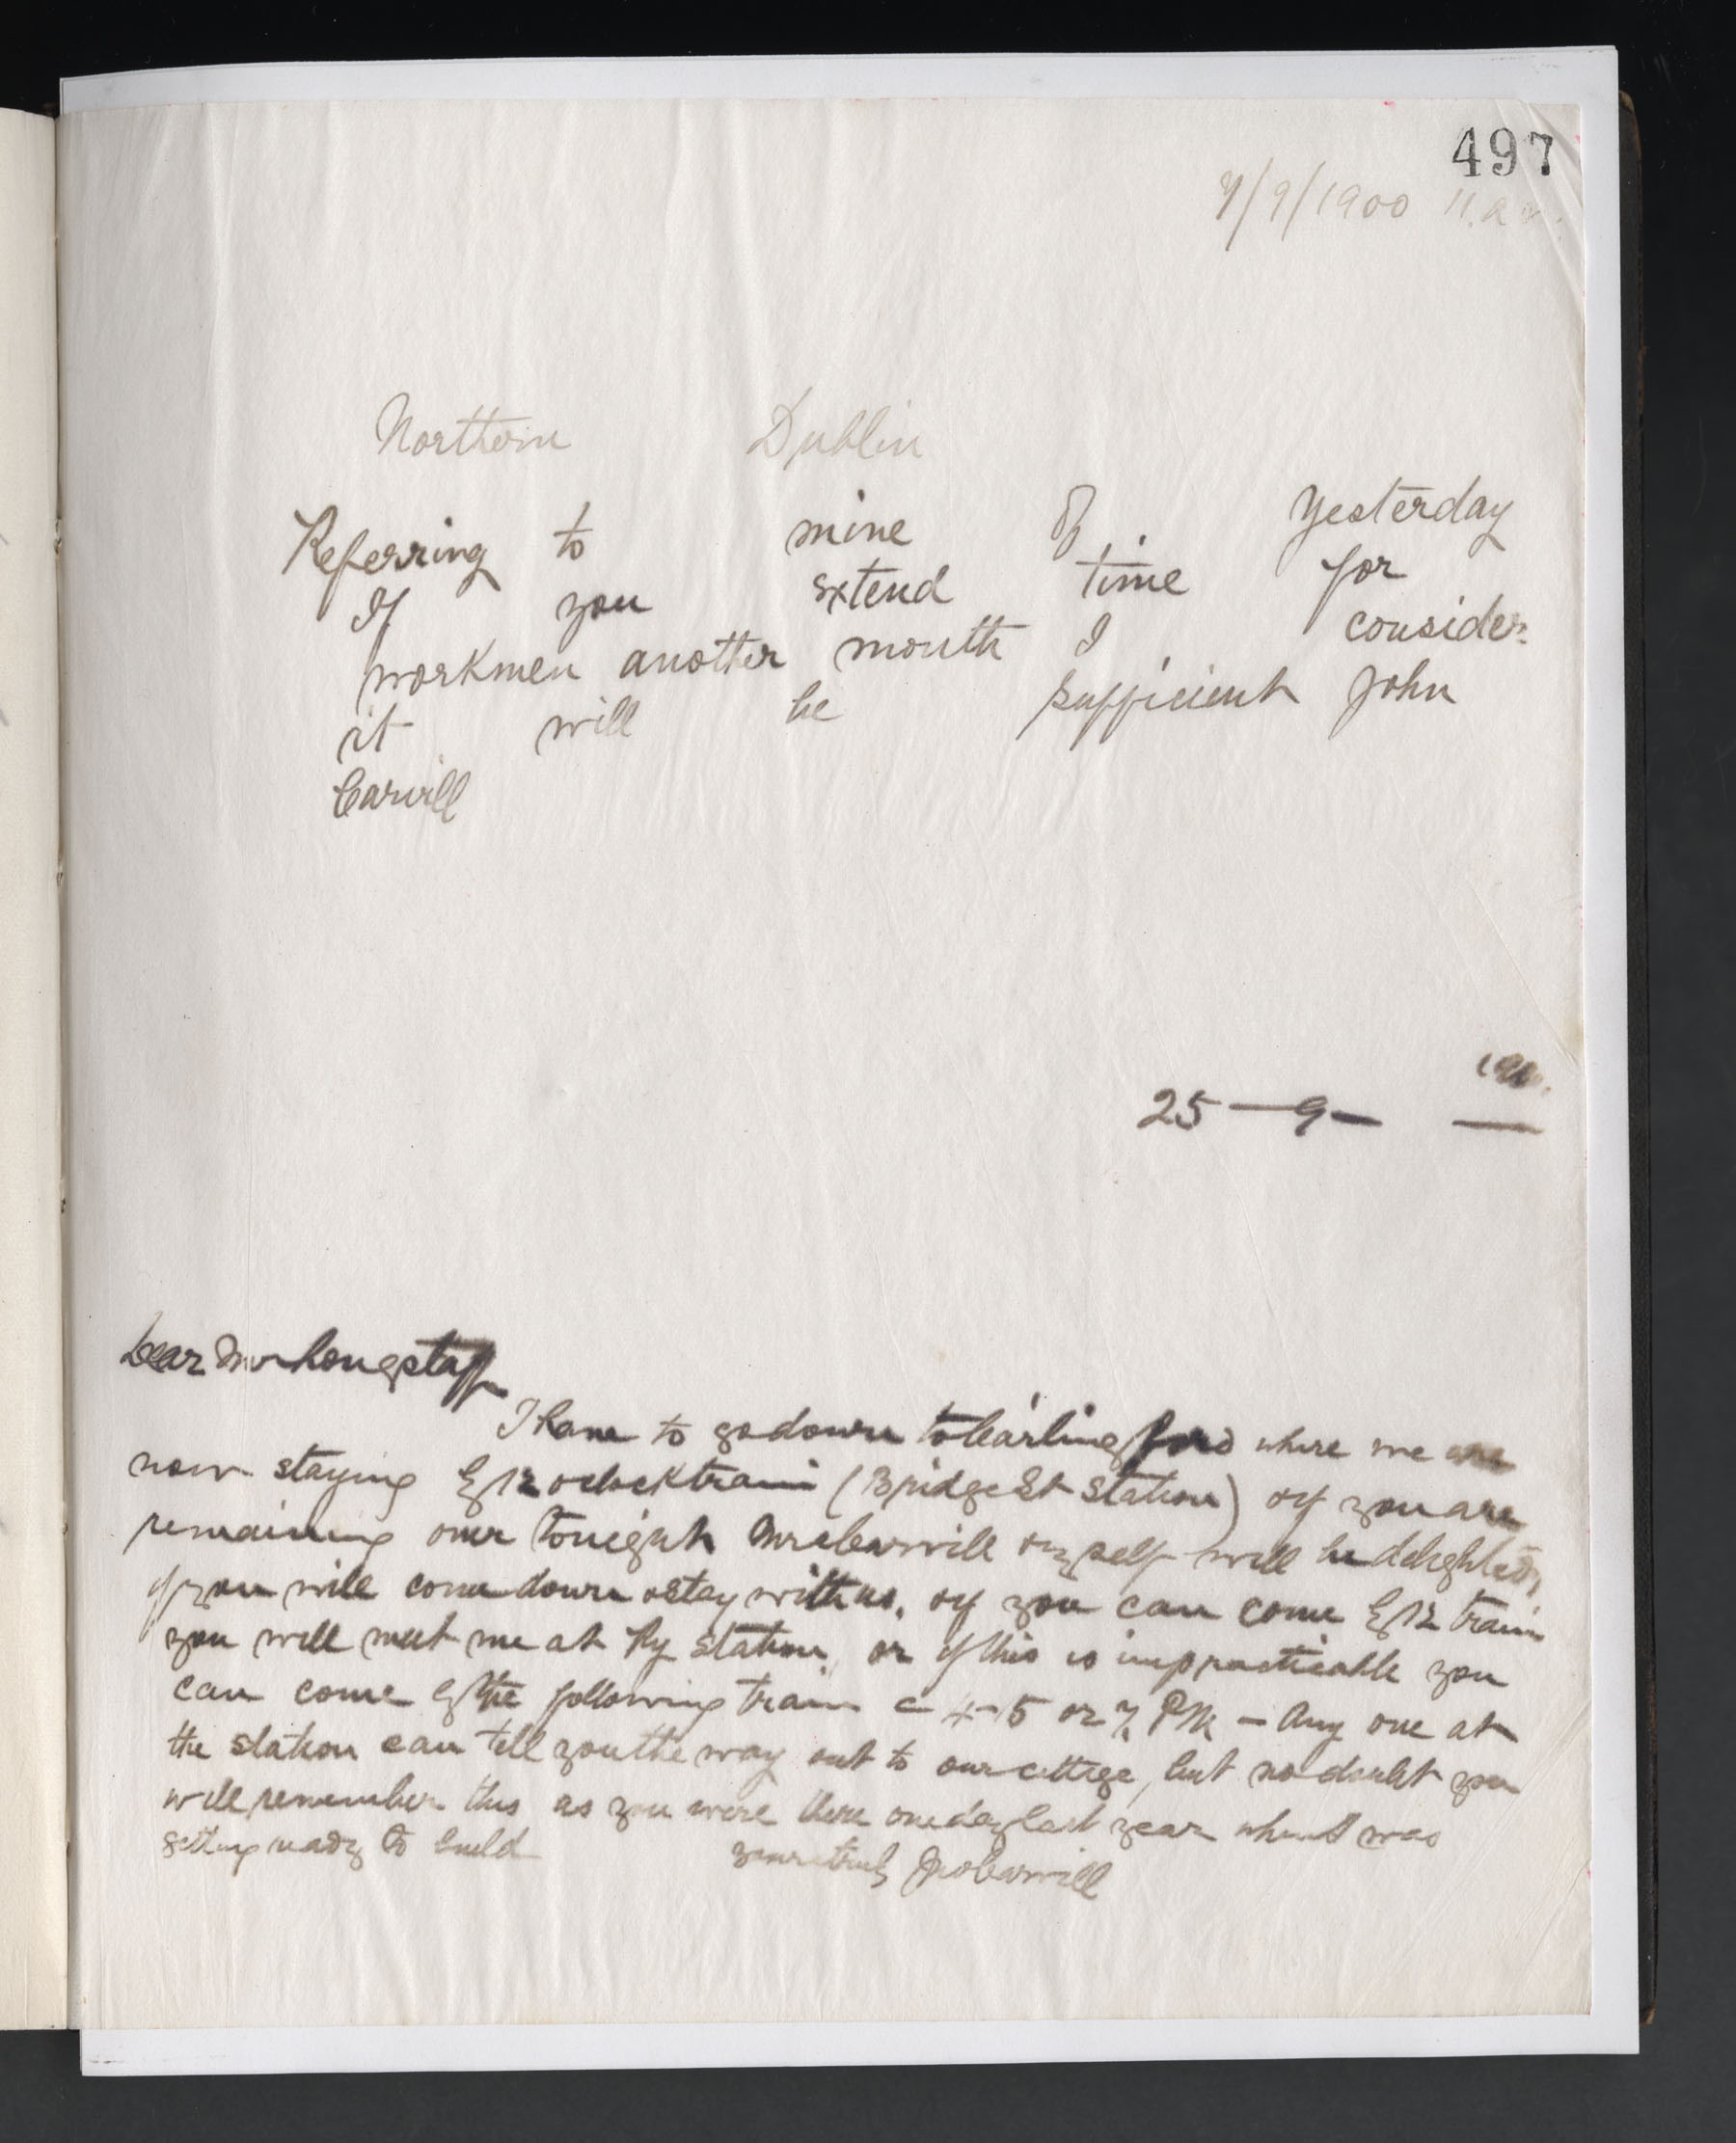 497
7/9/1900 11.a.m.
Northern Dublin
Referring to mine of yesterday
If you extend time for
workmen another month I consider
it will be sufficient John
Carvill
1900
25 — 9 —
Dear Mr Longstaff
I have to go down to Carlingford where we are
now staying by 12 oclock train (Bridge St Station) & if you are
remaining over tonight Mrs Carvill & myself will be delighted,
if you will come down & stay with us, & if you can come by 12 train
you will meet me at Ry Station, or if this is impracticable you
can come by the following train = 4-5 or 7. PM — Any one at
the station can tell you the way out to our cottage, but no doubt you
will remember this as you were there one day last year when I was
getting ready to build
yours truly Jno Carvill